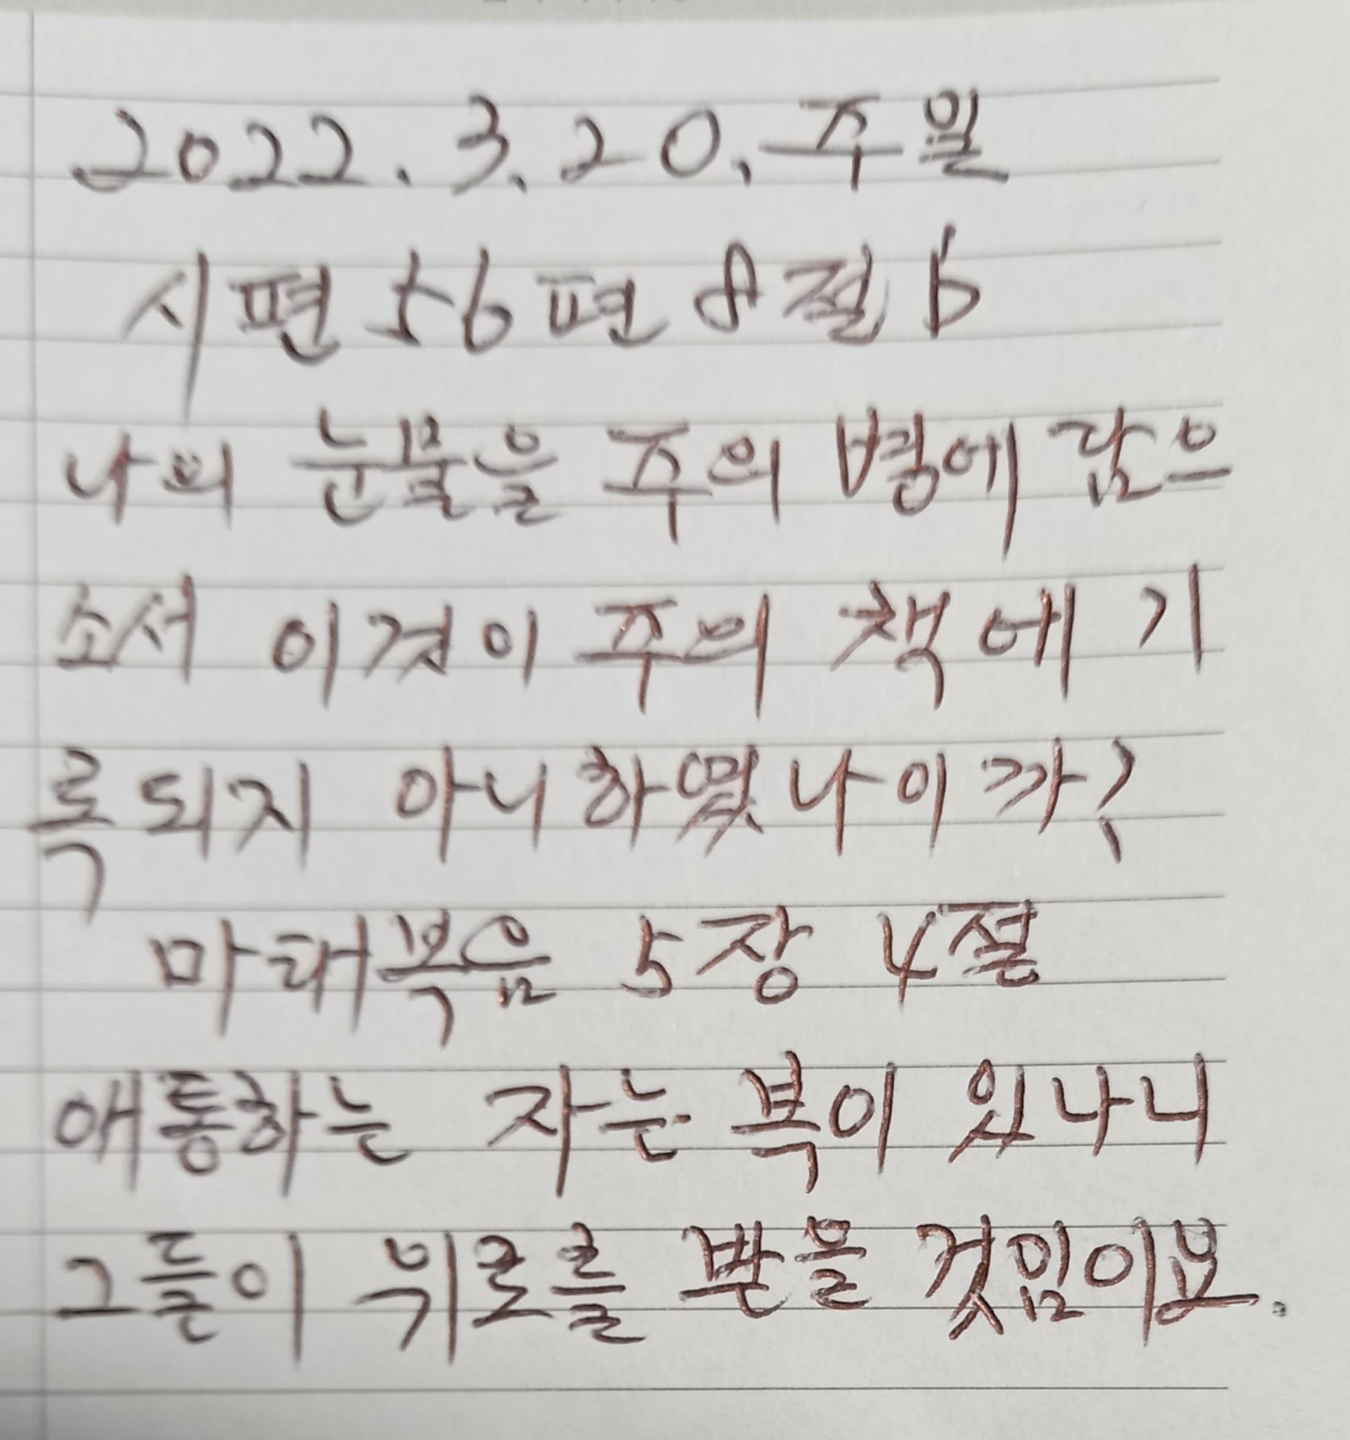 2022. 3. 20. 주일
시편 56편 8절 b
나의 눈물을 주의 병에 담으
소서 이것이 주의 책에 기
록되지 아니하였나이까?
마태복음 5장 4절
애통하는 자는 복이 있나니
그들이 위로를 받을 것임이요.